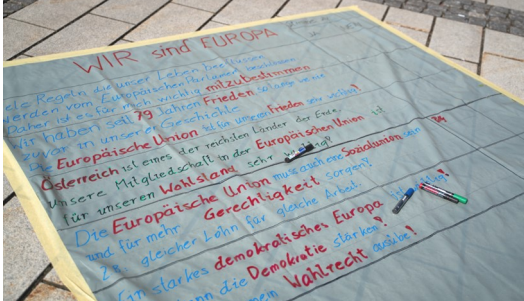 WIR sind EUROPA
viele Regeln die unser Leben beeinflussen
werden vom Europäischen Parlament beschlossen
Daher ist es für mich wichtig mitzubestimmen
Wir haben seit 79 Jahren Frieden so lange wie nie
zuvor in unserer Geschichte
Die Europäische Union ist für unseren Frieden sehr wichtig!
Österreich ist eines der reichsten Länder der Erde.
unsere Mitgliedschaft in der Europäischen Union ist
für unseren Wohlstand sehr wichtig!
Die Europäische Union muss auch eine Sozialunion sein
und für mehr Gerechtigkeit sorgen!
z.B. gleicher Lohn für gleiche Arbeit.
Ein starkes demokratisches Europa
die Demokratie stärken?
mein Wahlrecht ausübe!